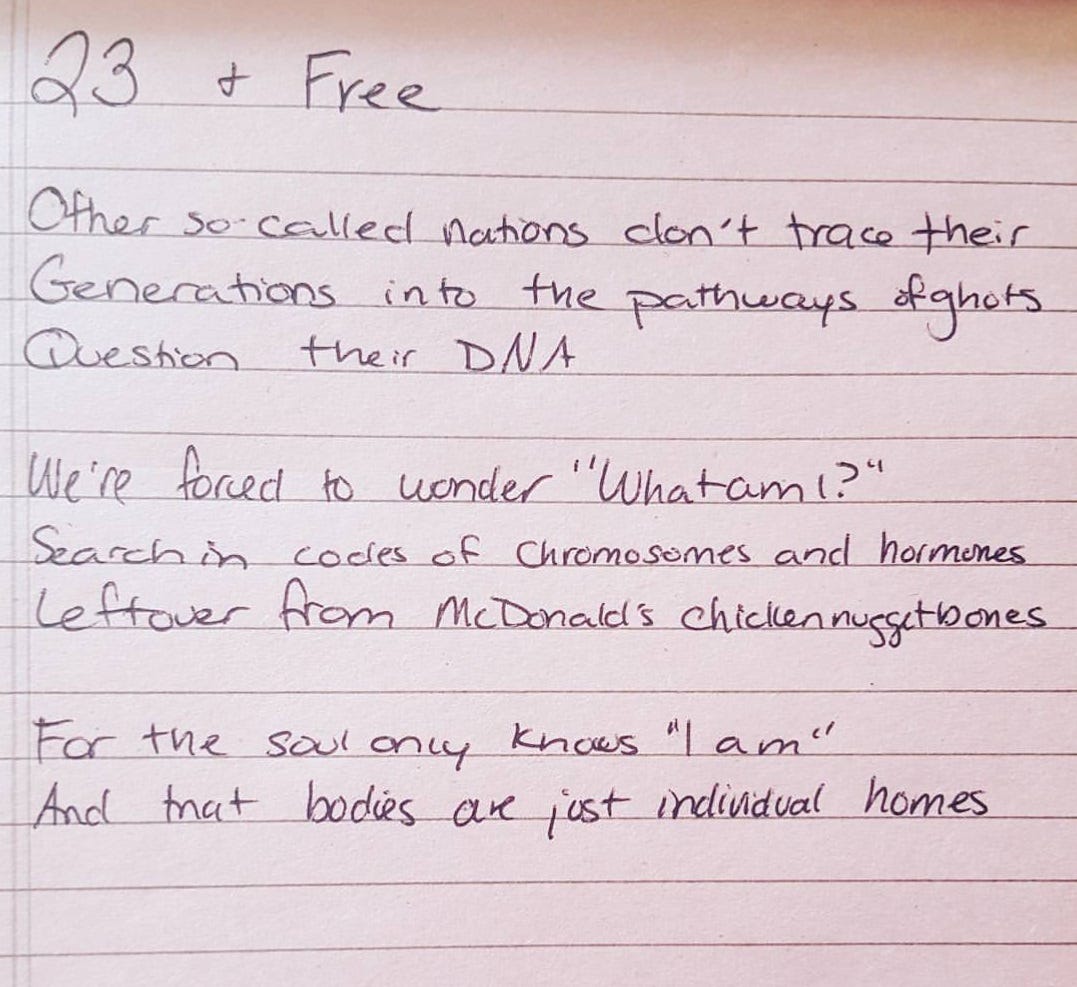 23 + Free
Other so-called nations don't trace their
Generations into the pathways of ghots
Question their DNA
We're forced to wonder "What am I?"
Search in codes of Chromosomes and hormones
Leftover from McDonald's chicken nugget bones
For the soul only knows "I am"
And that bodies are just individual homes